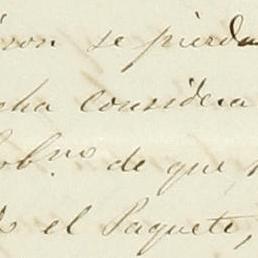 se pierda
cha considera
Gob.no de que
el Paquete,